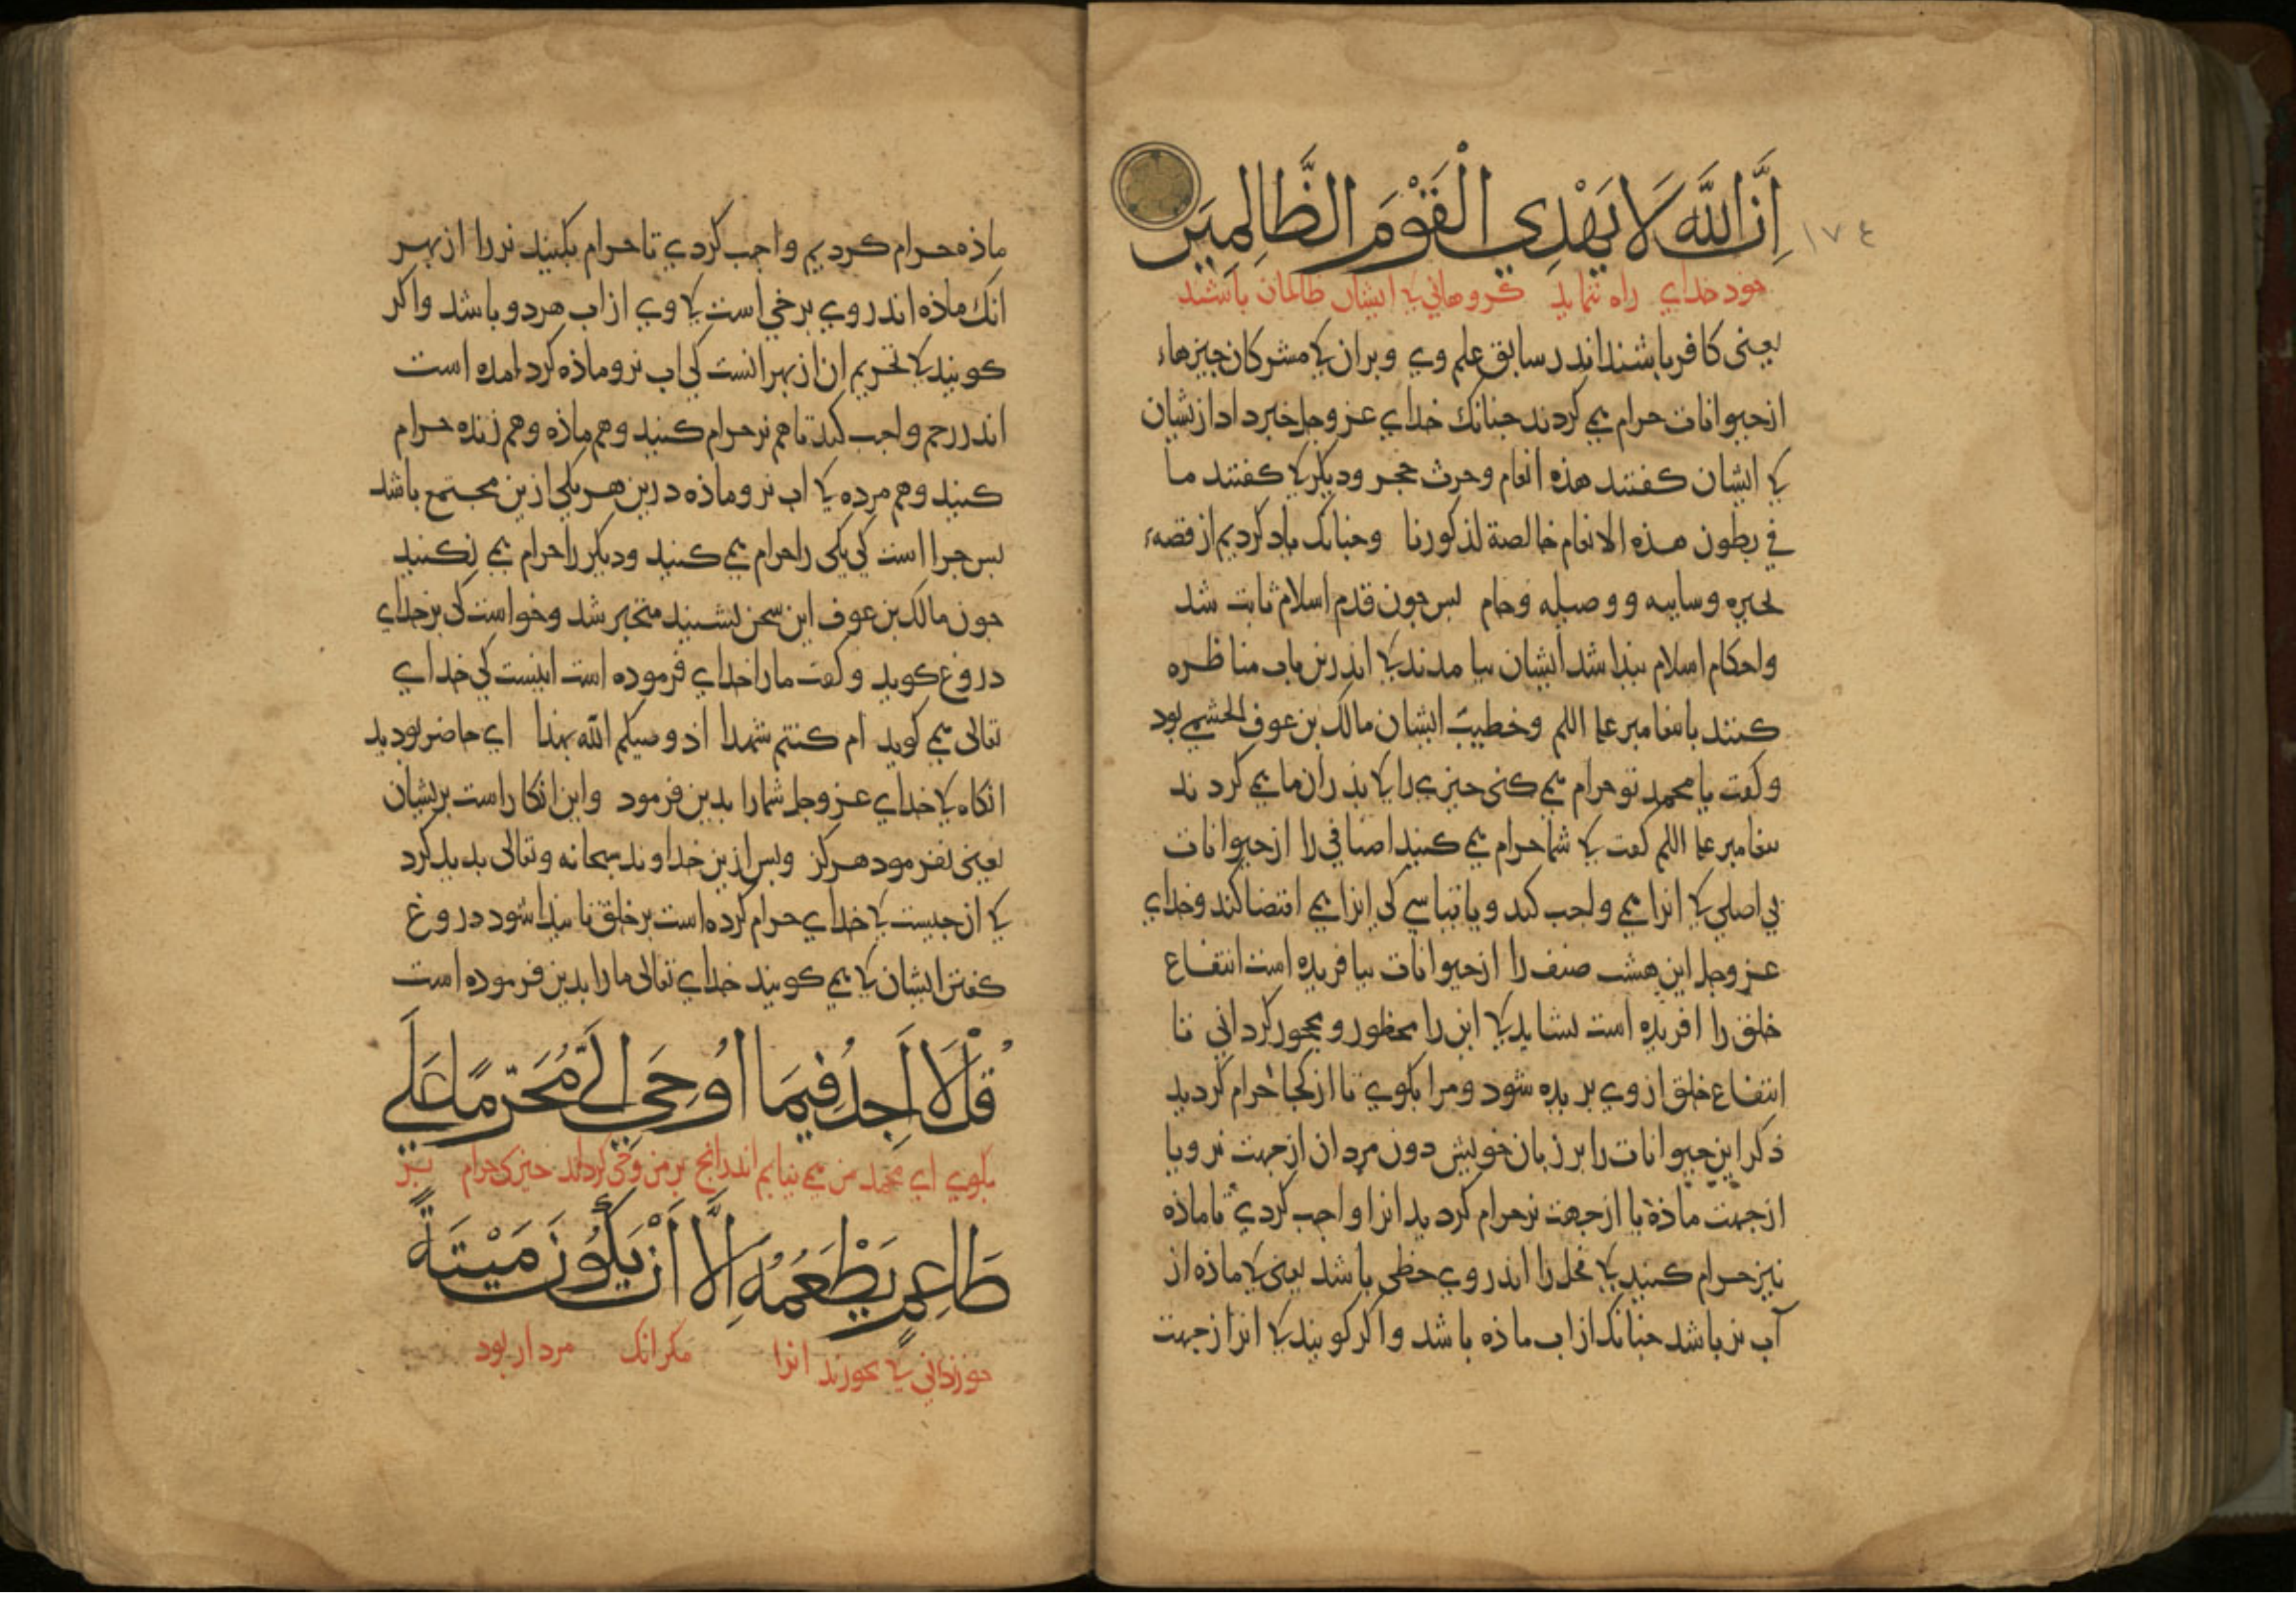 إِنَّ اللَّهَ لَا يَهْدِي الْقَوْمَ الظَّالِمِينَ
١٧٤
خود خداي راه ننمايد كروهاني كه ايشان ظالمان باشند
يعني كافر باشند اندر سابق علم وي وبدان كه مشركان چيزهاء
از حيوانات حرام مي كردند چنانك خداي عز وجل خبر داد ازيشان
كه ايشان كفتند هذه انعام وحرث حجر وديكر كه كفتند ما
في بطون هذه الانعام خالصة لذكورنا وچنانك ياد كرديم از قصهء
بحيره وسايبه ووصيله وحام پس چون قدم اسلام ثابت شد
واحكام اسلام پيدا شد ايشان بيامدند كه اندرين باب مناظره
كنند با پيغامبر وخطيب ايشان مالك بن عوف الجشمي بود
وكفت يا محمد تو حرام مي كني چيزي را كه پدران ما مي كردند
پيغامبر كفت كه شما حرام مي كنيد اصنافي را از حيوانات
بي اصلي كه انرا مي واجب كند ويا قياسي كي انرا مي اقتضا كند وخداي
عز وجل اين هشت صنف را از حيوانات بيافريده است انتفاع
خلق را افريده است نشايد كه اين را محظور ومحجور كرداني تا
انتفاع خلق از وي بريده شود ومرا بكوي تا از كجا حرام كرديد
ذكر اين حيوانات را بر زبان خويش دون مردان از جهت نر ويا
از جهت ماذه يا از جهت نر حرام كرديد انرا واجب كردي تا ماذه
نيز حرام كنيد كه فحل را اندر وي حظى باشد يعني كه ماذه از
آب نر باشد چنانك از اب ماذه باشد واكر كويند كه انرا از جهت
ماذه حرام كرديم واجب كردي تا حرام بكنيد نر را از بهر
انك ماذه اندر وي برخي است كه وي از اب هر دو باشد واكر
كويند كه تحريم ان از بهر انست كي اب نر وماذه كرد امده است
اندر رحم واجب كند تا هم نر حرام كنند وهم ماذه وهم زنده حرام
كنند وهم مرده كه اب نر وماذه درين هر يكي ازين مجتمع باشد
پس چرا است كي يكي را حرام مي كنيد وديكر را حرام مي نكنيد
چون مالك بن عوف اين سخن بشنيد متحير شد وخواست كي بر خداي
دروغ كويد وكفت ما را خداي فرموده است اينست كي خداي
تعالى مي كويد ام كنتم شهدا اذ وصيكم الله بهذا اي حاضر بوديد
انكاه كه خداي عز وجل شما را بدين فرمود واين انكار است بريشان
يعني نفرمود هركز وپس ازين خداوند سبحانه وتعالى پديد كرد
كه ان چيست كه خداي حرام كرده است بر خلق تا پيدا شود دروغ
كفتن ايشان كه مي كويند خداي تعالى ما را بدين فرموده است
قُلْ لَا أَجِدُ فِيمَا أُوحِيَ إِلَيَّ مُحَرَّمًا عَلَى
بكوي اي محمد من مي نيابم اندرانچ بر من وحي كرداند چيزي حرام بر
طَاعِمٍ يَطْعَمُهُ إِلَّا أَنْ يَكُونَ مَيْتَةً
خورنداني كه بخورند انرا مكر انك مردار بود